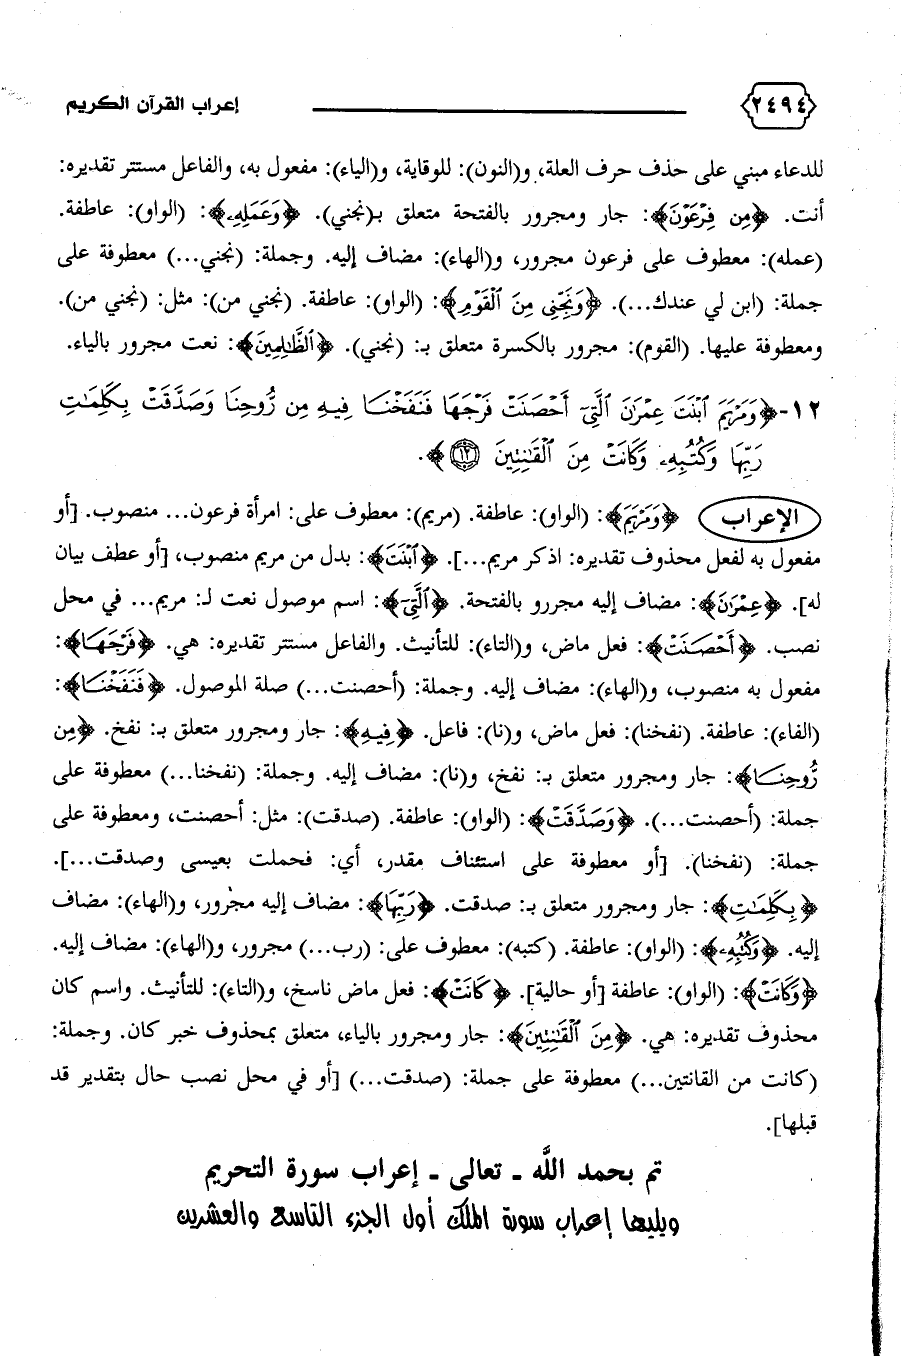 ٢٤٩٤ إعراب القرآن الكريم
للدعاء مبني على حذف حرف العلة، و(النون): للوقاية، و(الياء): مفعول به، والفاعل مستتر تقديره:
أنت. ﴿مِن فِرْعَوْنَ﴾: جار ومجرور بالفتحة متعلق بـ(نجني). ﴿وَعَمَلِهِۦ﴾: (الواو): عاطفة.
(عمله): معطوف على فرعون مجرور، و(الهاء): مضاف إليه. وجملة: (نجني...) معطوفة على
جملة: (ابن لي عندك...). ﴿وَنَجِّنِى مِنَ ٱلْقَوْمِ﴾: (الواو): عاطفة. (نجني من): مثل: (نجني من).
ومعطوفة عليها. (القوم): مجرور بالكسرة متعلق بـ: (نجني). ﴿ٱلظَّٰلِمِينَ﴾: نعت مجرور بالياء.
١٢-﴿وَمَرْيَمَ ٱبْنَتَ عِمْرَٰنَ ٱلَّتِىٓ أَحْصَنَتْ فَرْجَهَا فَنَفَخْنَا فِيهِ مِن رُّوحِنَا وَصَدَّقَتْ بِكَلِمَٰتِ
رَبِّهَا وَكُتُبِهِۦ وَكَانَتْ مِنَ ٱلْقَٰنِتِينَ ١٢﴾.
الإعراب ﴿وَمَرْيَمَ﴾: (الواو): عاطفة. (مريم): معطوف على: امرأة فرعون... منصوب. [أو
مفعول به لفعل محذوف تقديره: اذكر مريم...]. ﴿ٱبْنَتَ﴾: بدل من مريم منصوب، [أو عطف بيان
له]. ﴿عِمْرَٰنَ﴾: مضاف إليه مجررو بالفتحة. ﴿ٱلَّتِىٓ﴾: اسم موصول نعت لـ: مريم... في محل
نصب. ﴿أَحْصَنَتْ﴾: فعل ماض، و(التاء): للتأنيث. والفاعل مستتر تقديره: هي. ﴿فَرْجَهَا﴾:
مفعول به منصوب، و(الهاء): مضاف إليه. وجملة: (أحصنت...) صلة الموصول. ﴿فَنَفَخْنَا﴾:
(الفاء): عاطفة. (نفخنا): فعل ماض، و(نا): فاعل. ﴿فِيهِ﴾: جار ومجرور متعلق بـ: نفخ. ﴿مِن
رُّوحِنَا﴾: جار ومجرور متعلق بـ: نفخ، و(نا): مضاف إليه. وجملة: (نفخنا...) معطوفة على
جملة: (أحصنت...). ﴿وَصَدَّقَتْ﴾: (الواو): عاطفة. (صدقت): مثل: أحصنت، ومعطوفة على
جملة: (نفخنا). [أو معطوفة على استئناف مقدر، أي: فحملت بعيسى وصدقت...].
﴿بِكَلِمَٰتِ﴾: جار ومجرور متعلق بـ: صدقت. ﴿رَبِّهَا﴾: مضاف إليه مجرور، و(الهاء): مضاف
إليه. ﴿وَكُتُبِهِۦ﴾: (الواو): عاطفة. (كتبه): معطوف على: (رب...) مجرور، و(الهاء): مضاف إليه.
﴿وَكَانَتْ﴾: (الواو): عاطفة [أو حالية]. ﴿كَانَتْ﴾: فعل ماض ناسخ، و(التاء): للتأنيث. واسم كان
محذوف تقديره: هي. ﴿مِنَ ٱلْقَٰنِتِينَ﴾: جار ومجرور بالياء، متعلق بمحذوف خبر كان. وجملة:
(كانت من القانتين...) معطوفة على جملة: (صدقت...) [أو في محل نصب حال بتقدير قد
قبلها].
تم بحمد اللَّه - تعالى - إعراب سورة التحريم
ويليها إعراب سورة الملك أول الجزء التاسع والعشرين